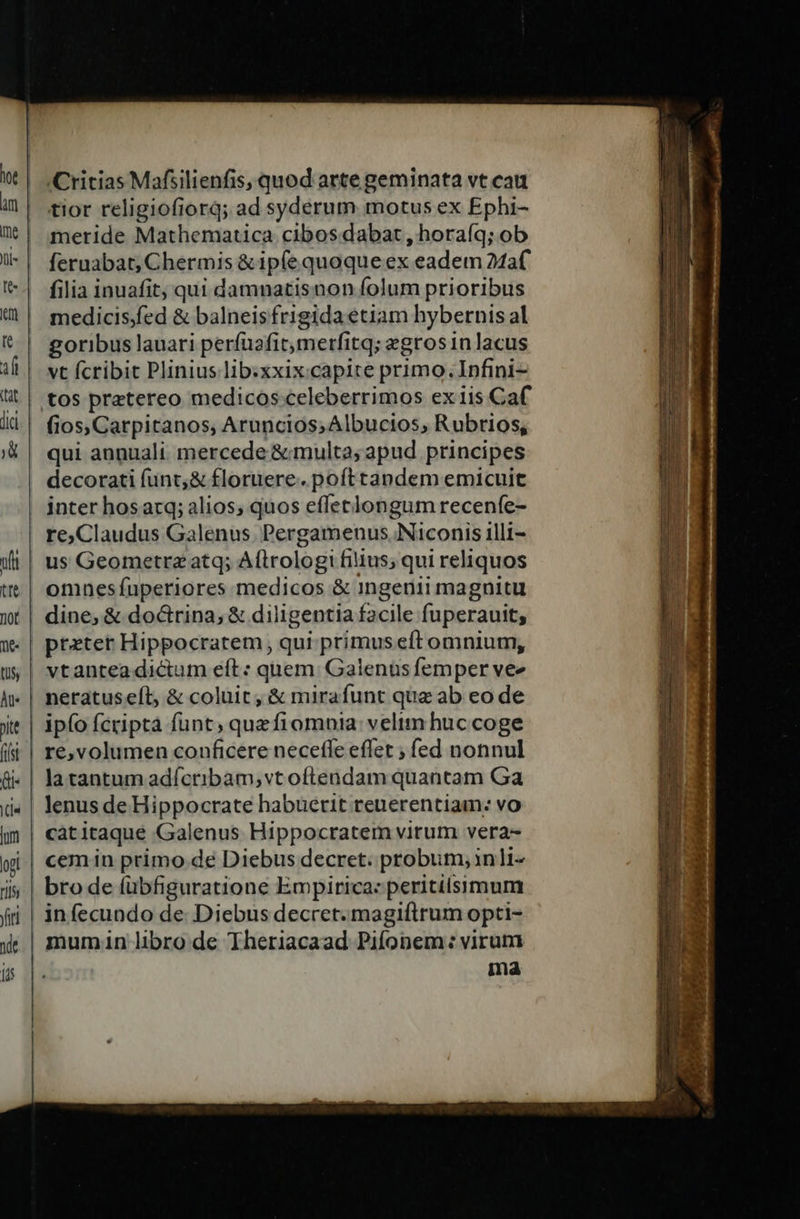 Critias Mafsilienfis, quod arte geminata vt cau
tior religiofiorq; ad syderum motus ex Ephi-
meride Mathematica cibos dabat, horafq; ob
feruabat, Chermis & ipfe quoque ex eadem Maf
filia inuafit, qui damnatis non folum prioribus
medicis, fed & balneis frigida etiam hybernis al
goribus lauari perfuafit, merfitq; ægros in lacus
vt fcribit Plinius lib. xxix capite primo. Infini-
tos prætereo medicos celeberrimos ex iis Caf
fios, Carpitanos, Aruncios, Albucios, Rubrios,
qui annuali mercede & multa, apud principes
decorati funt, & floruere. poft tandem emicuit
inter hos atq; alios, quos effet longum recenfe-
re, Claudus Galenus Pergamenus Niconis illi-
us Geometræ atq; Aftrologi filius, qui reliquos
omnes fuperiores medicos & ingenii magnitu
dine, & doctrina, & diligentia facile fuperauit,
præter Hippocratem, qui primus eft omnium,
vt antea dictum eft: quem Galenus femper ve-
neratus eft, & coluit, & mira funt quæ ab eo de
ipfo fcripta funt, quæ fi omnia velim huc coge
re, volumen conficere neceffe effet, fed nonnul
la tantum adfcribam, vt oftendam quantam Ga
lenus de Hippocrate habuerit reuerentiam: vo
cat itaque Galenus Hippocratem virum vera-
cem in primo de Diebus decret. probum, in li-
bro de fubfiguratione Empirica: peritifsimum
in fecundo de Diebus decret. magiftrum opti-
mum in libro de Theriaca ad Pifonem: virum
ma